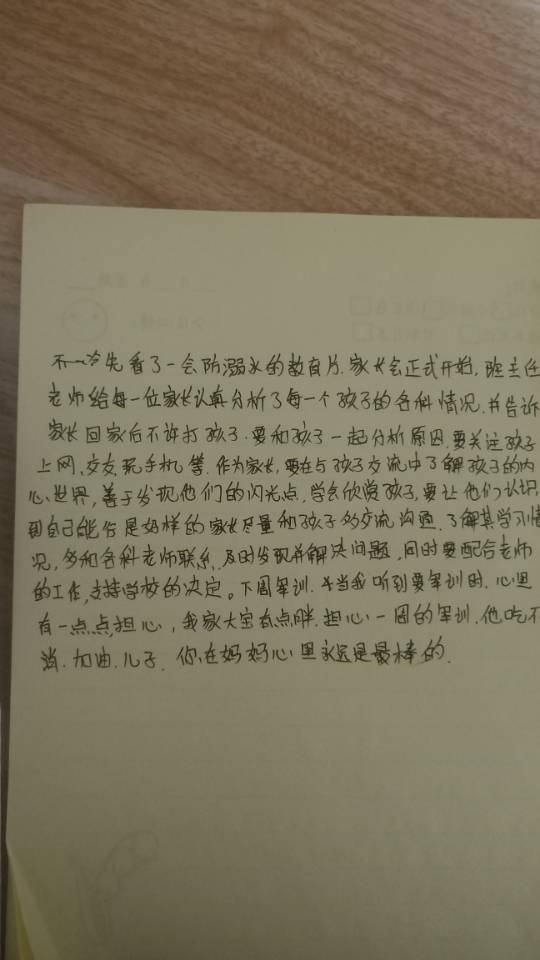 先看了一会防溺水的教育片.家长会正式开始,陈主任
老师给每一位家长认真分析了每一个孩子的各科情况.并告诉
家长回家后不许打孩子.要和孩子一起分析原因,要关注孩子
上网、交友、玩手机等.作为家长,要在与孩子交流中了解孩子的内
心世界,善于发现他们的闪光点,学会欣赏孩子,要让他们认识
到自己能行是好样的家长尽量和孩子多交流沟通.了解其学习情
况,多和各科老师联系,及时发现并解决问题,同时要配合老师
的工作,支持学校的决定。下周军训.当我听到要军训时.心里
有一点点担心,我家大宝有点胖.担心一周的军训.他吃不
消.加油.儿子.你在妈妈心里永远是最棒的.